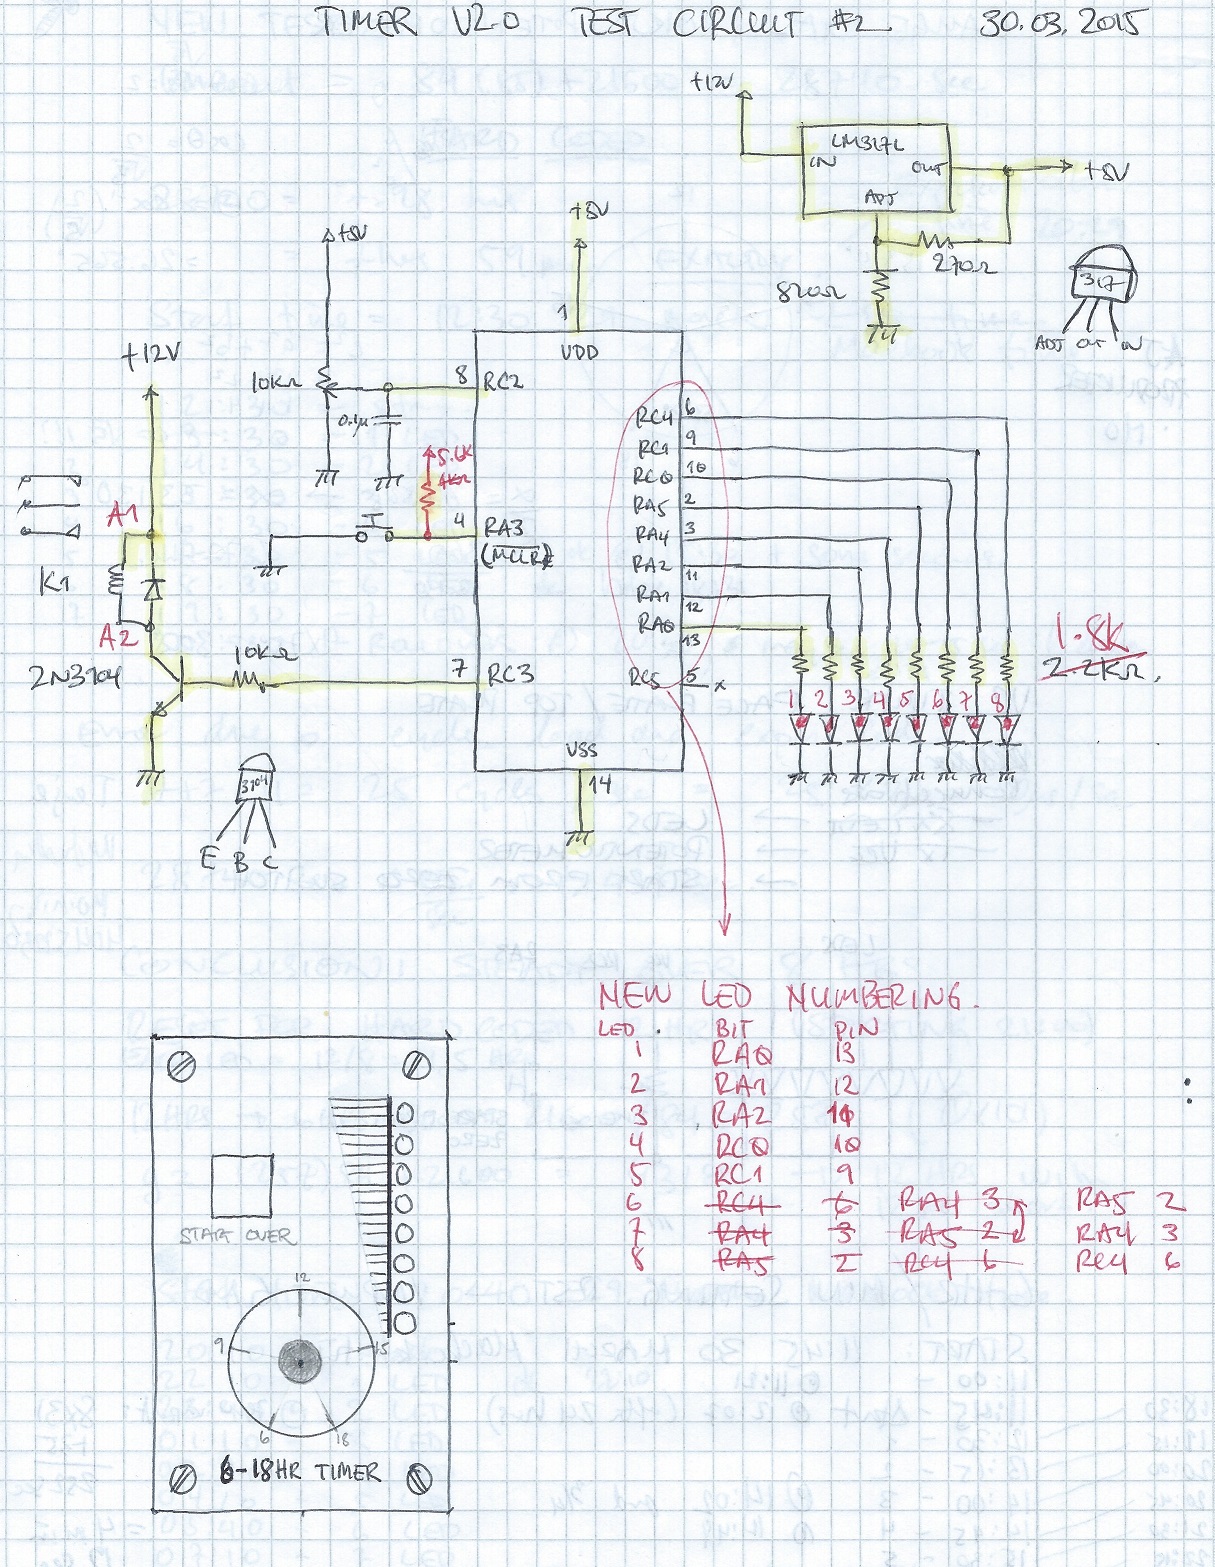 TIMER V2.0 TEST CIRCUIT #2 30.03.2015
+12V
LM317L
IN
OUT
ADJ
+5V
270Ω
820Ω
317
ADJ OUT IN
+5V
+5V
1
VDD
+12V
10KΩ
8
RC2
0.1µ
5.6K
4
RA3
(MCLR)
A1
K1
A2
2N3904
10KΩ
7
RC3
3904
E B C
RC4 6
RC1 9
RC0 10
RA5 2
RA4 3
RA2 11
RA1 12
RA0 13
RC5 5 x
1.8K
2.2KΩ.
1 2 3 4 5 6 7 8
VSS
14
NEW LED NUMBERING.
LED. BIT PIN
1 RA0 13
2 RA1 12
3 RA2 11
4 RC0 10
5 RC1 9
6 RC4 6 RA4 3 RA5 2
7 RA4 3 RA5 2 RA4 3
8 RA5 2 RC4 6 RC4 6
START OVER
12
9
15
6
18
6-18HR TIMER